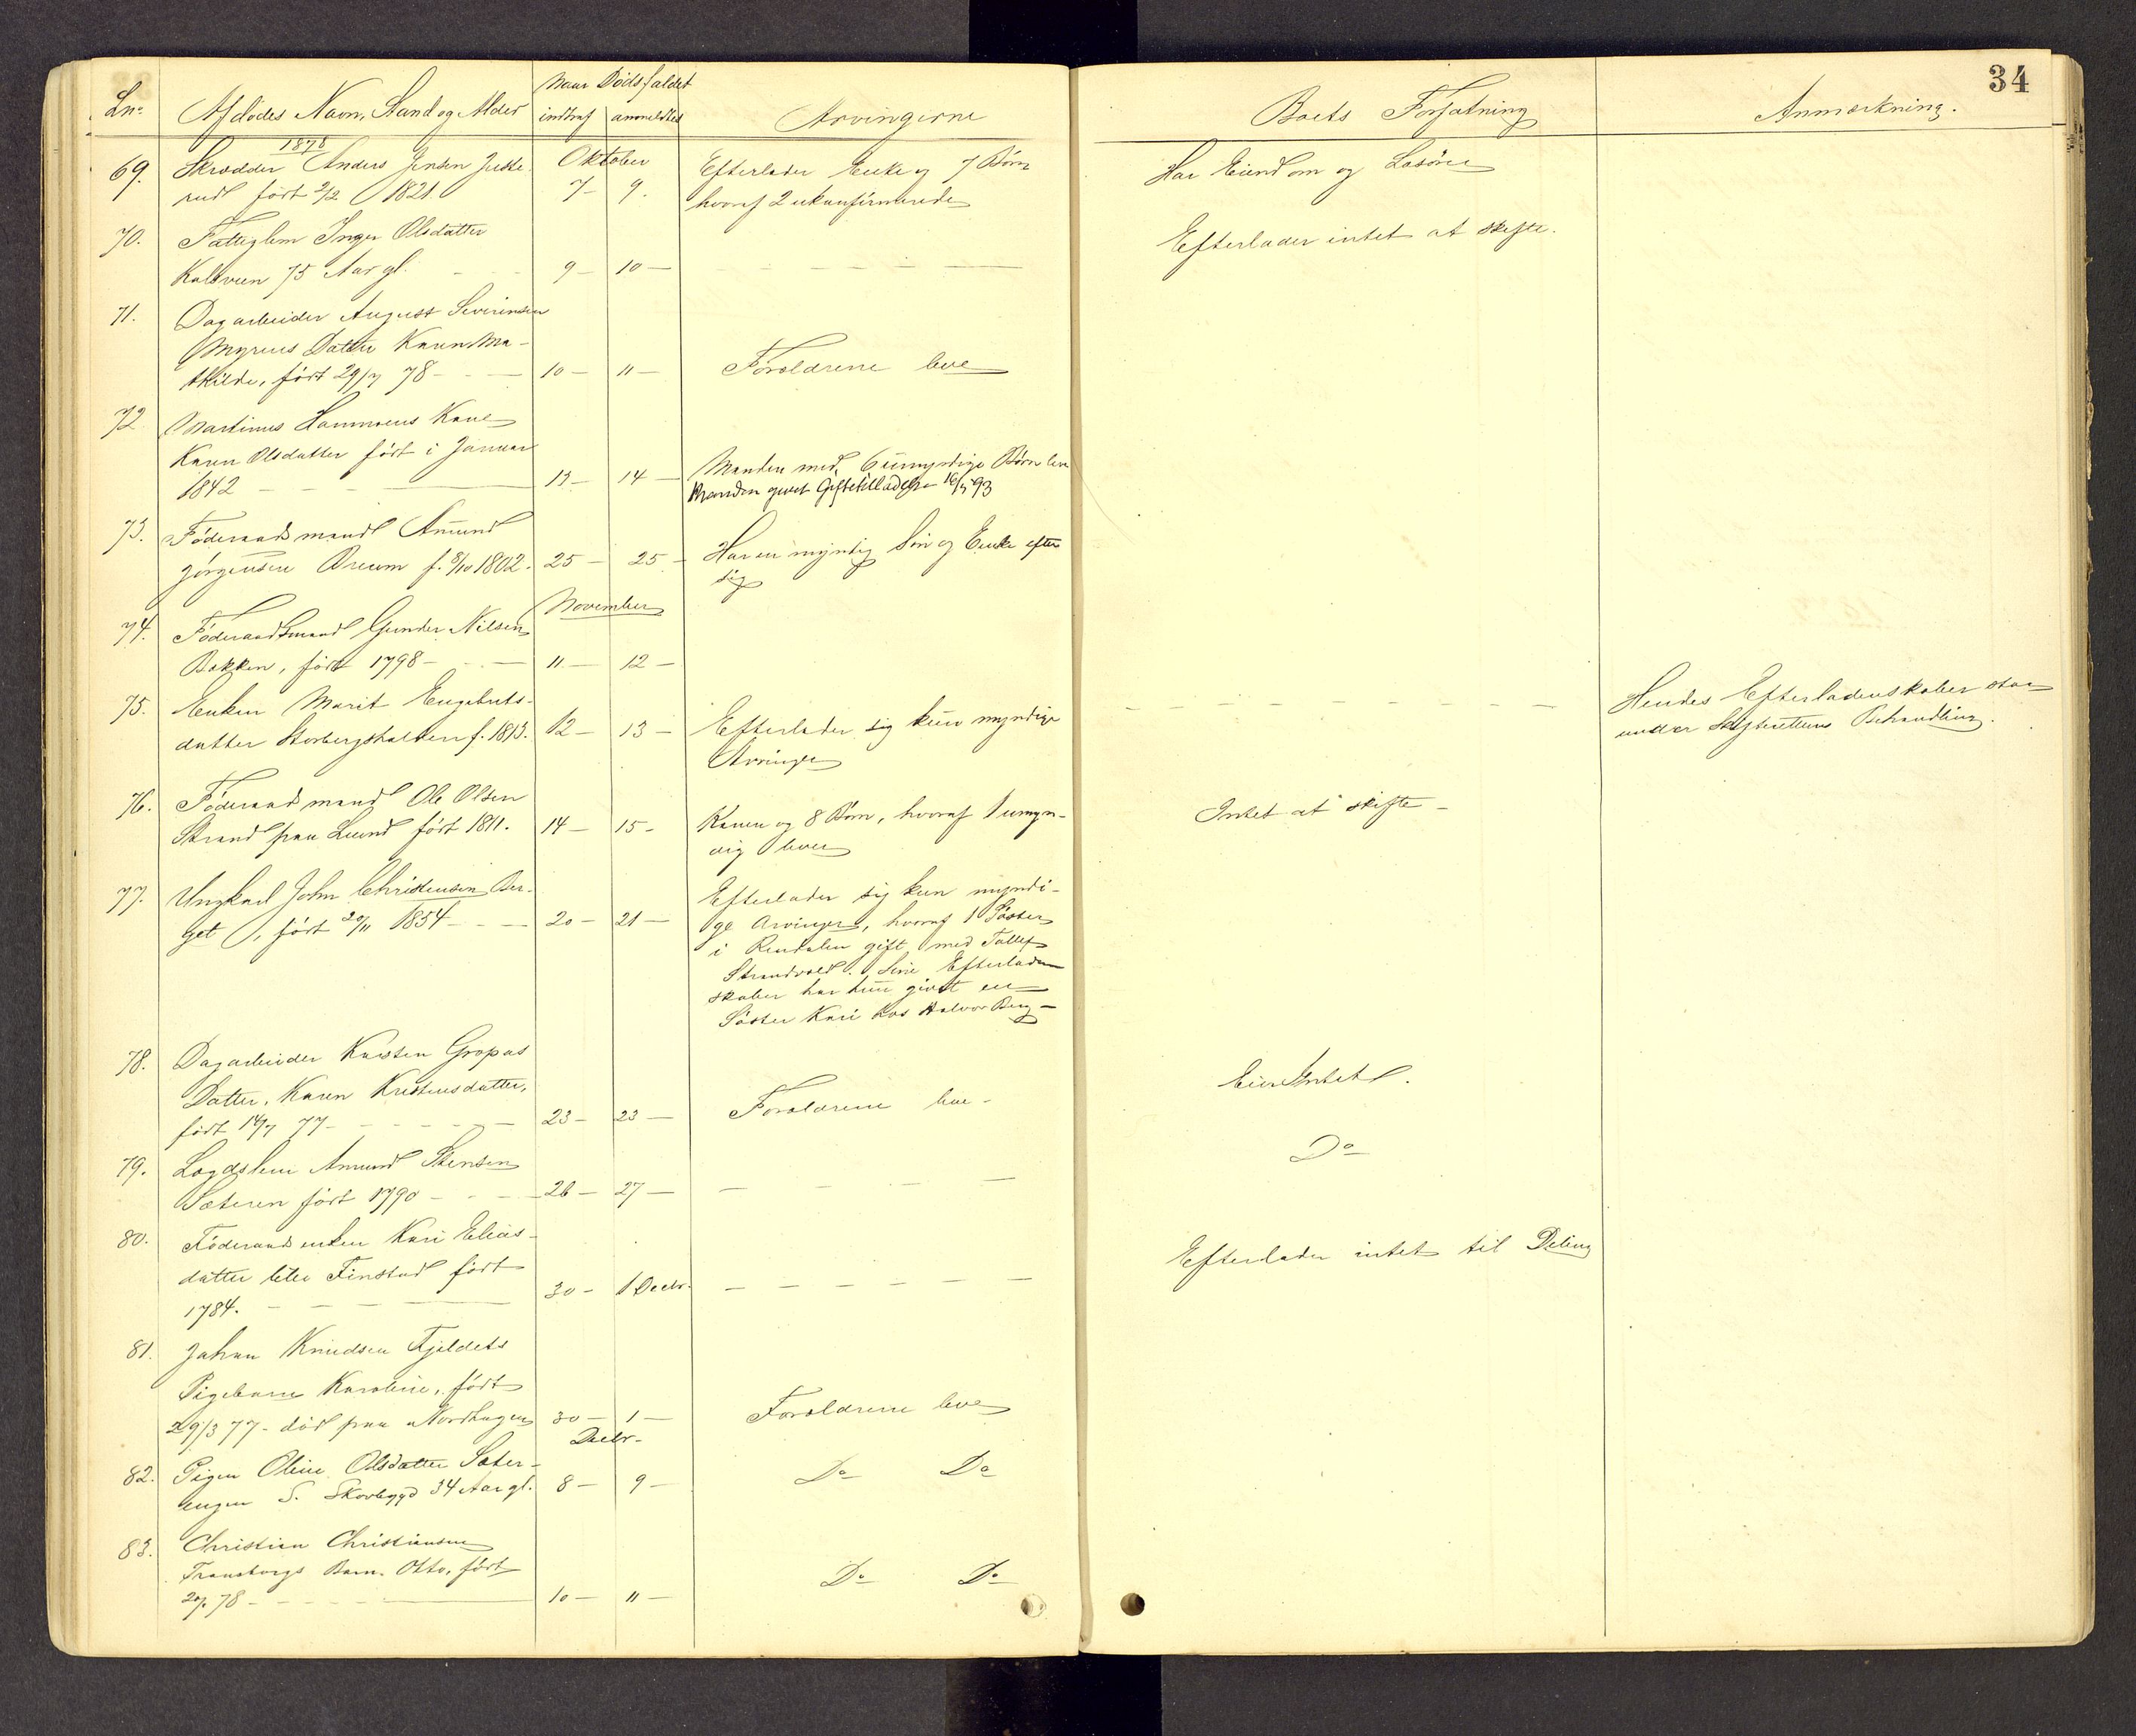 34
Naar Dødsfaldet
Lno Afdødes Navn, Stand og Alder indtraf anmeldtes Arvingerne Boets Forfatning Anmærkning.
1878
69. Skrædder Anders Jensen Jeste- Oktober Efterlader Enke og 7 Børn Har Eiendom og Løsøre
rud født 2/2 1821. 7 - 9. hvoraf 2 ukonfirmerede
70. Fattiglem Inger Olsdatter Efterlader intet at skifte.
Kalsveen 75 Aar gl. - 9 - 10 -
71. Dagarbeider August Severinsen
Myrens Datter Karen Ma-
thilde, født 29/7 78 - 10 - 11 - Forældrene leve
72 Martinus Hammerens Kone
Karen Olsdatter født i Januar Manden med 6 umyndige Børn leve
1842 - 13 - 14 - Manden givet Giftetilladelse 16/5 93
73. Føderaadsmand Amund Har en myndig Søn og Enke efter
Jørgensen Øreum f. 8/10 1802. 25 - 25 - sig
November
74. Føderaadsmand Gunder Nilsen
Bakken, født 1798 - 11 - 12 -
75. Enken Marit Engebrets- Hendes Efterladenskaber staa
datter Storbergshalsen f. 1813. 12 - 13 - Efterlader sig kun myndige under Skifterettens Behandling.
Arvinger
76. Føderaadsmand Ole Olsen Intet at skifte -
Strand paa Lund født 1811. 14 - 15 - Konen og 8 Børn, hvoraf 1 umyn-
dig lever
77. Ungkarl John Christensen Ber- Efterlader sig kun myndi-
get, født 20/11 1854 - 20 - 21 - ge Arvinger, hvoraf 1 Søster
i Rendalen gift med Tollef
Strandvold. Sine Efterladen
skaber har han givet en
Søster Kari hos Halvor Berg -
78. Dagarbeider Karsten Gropas Eier Intet.
Datter, Karen Kristensdatter,
født 14/7 77 - 23 - 23 - Forældrene leve -
79. Lægdslem Amund Stensen Do
Sæteren født 1790 - 26 - 27 -
80. Føderaadsenken Kari Elias- Efterlader intet til Deling
datter lille Finstad født
1784. - 30 - 1 Decbr.
81. Johan Knudsen Fjeldets
Pigebarn Karoline, født Forældrene leve
29/3 77 - død paa Nordhagen 30 - 1 -
Decbr -
82. Pigen Oline Olsdatter Sæter- Do Do
engen S. Skovbygd 34 Aar gl. 8 - 9 -
83. Christian Christiansen
Fransborgs Barn Otto, født Do Do
78 - 10 - 11 -